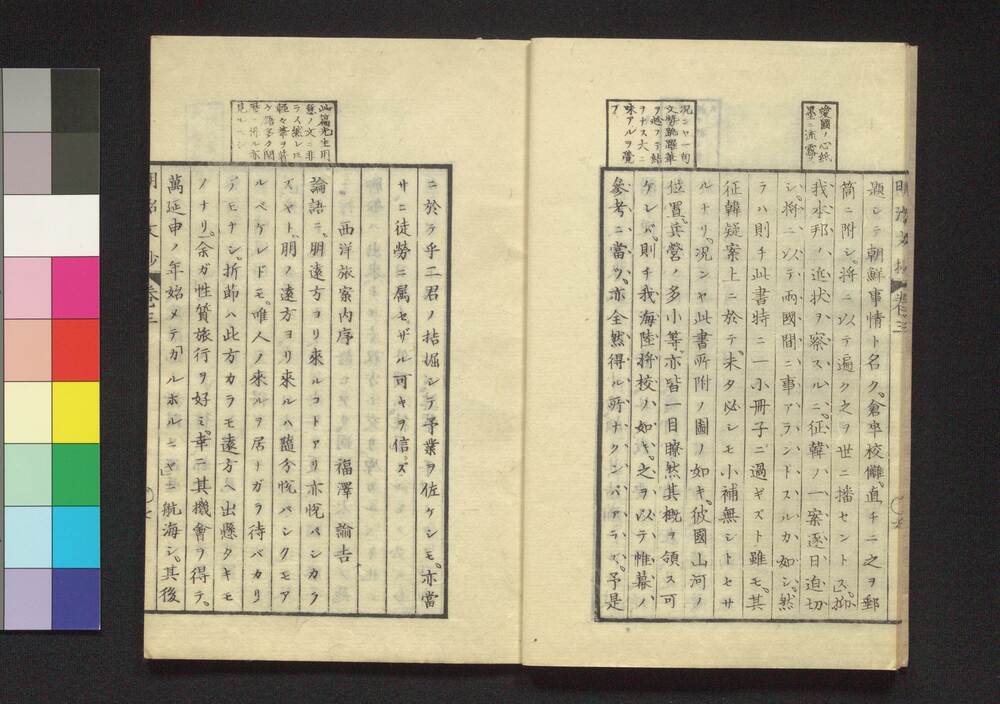 愛國ノ心紙
墨ニ流露ス
題シテ朝鮮事情ト名ク。倉卒校讎。直チニ之ヲ郵
筒ニ附シ。將ニ以テ遍ク之ヲ世ニ播セントス。抑
我本邦ノ近狀ヲ察スルニ。征韓ノ一案逐日迫切
シ。將ニ以テ兩國間ニ事アラントスルカ如シ。然
ラハ則チ此書特ニ一小冊子ニ過ギズト雖モ。其
征韓疑案上ニ於テ。未タ必シモ小補無シトセサ
ルナリ。況ンヤ此書所附ノ圖ノ如キ。彼國山河ノ
位置。兵營ノ多小等。亦皆一目瞭然其概ヲ領ス可
ケレバ。則チ我海陸將校ノ如キ。之ヲ以テ帷幕ノ
參考ニ當ツ。亦全然得ル所ナクンバアラズ。予是
況ンヤ一句
文勢跳躍
ヲナス大ニ
味アルヲ覺
フ
明治文抄 卷三
ニ於テ乎二君ノ拮据シテ予業ヲ佐ケシモ。亦當
サニ徒勞ニ属セザル可キヲ信ズ。
西洋旅案內序 福澤諭吉
論語ニ。朋遠方ヨリ來ルコトアリ亦悦バシカラ
ズヤト。朋ノ遠方ヨリ來ルハ隨分悦バシクモア
ルベケレドモ。唯人ノ來ルヲ居ナガラ待バカリ
デモナシ。折節ハ此方カラモ遠方ヘ出懸タキモ
ノナリ。余ガ性質旅行ヲ好ミ。幸ニ其機會ヲ得テ。
萬延申ノ年始メテカルホルニヤニ航海シ。其後
此篇先生用
意ノ文ニ非
見ルベシ
明治文抄 卷三